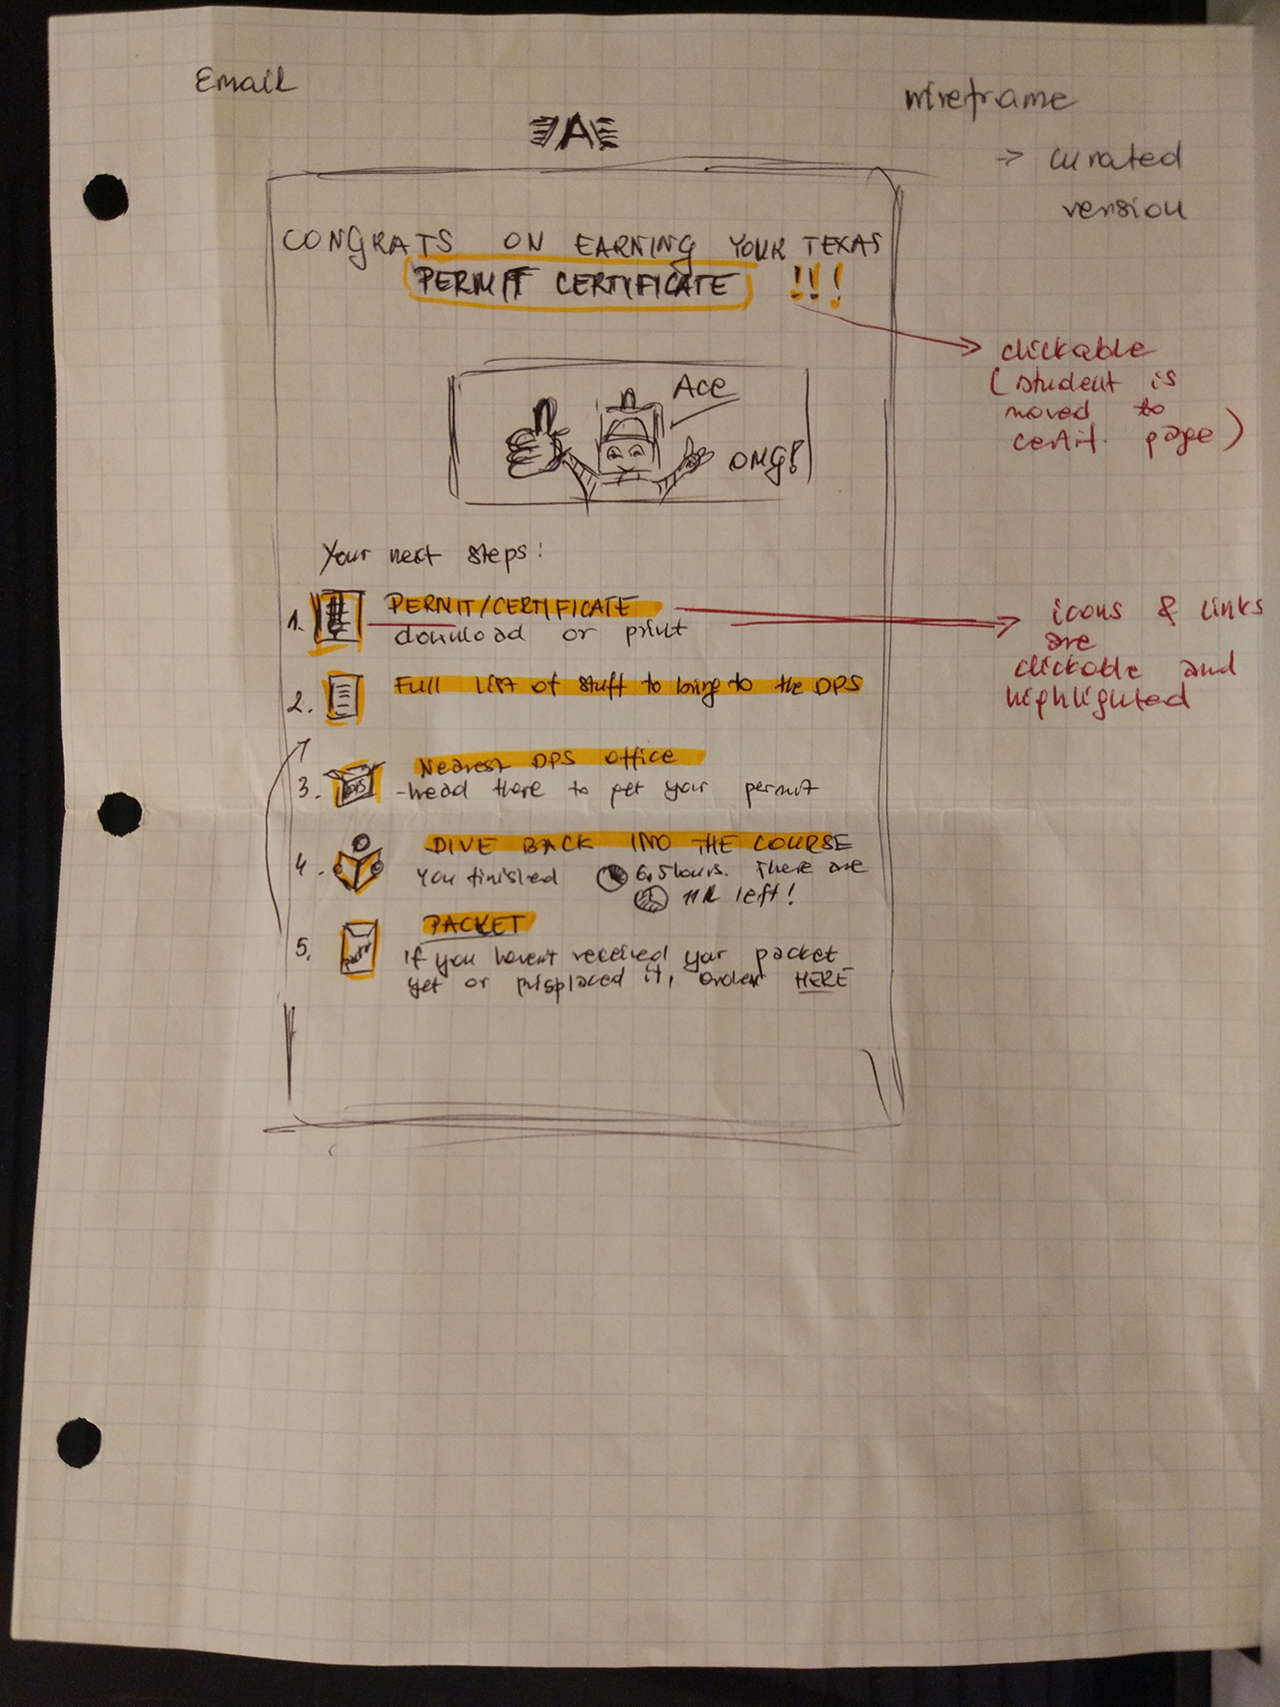 Email
wireframe
-> curated
version
A
CONGRATS ON EARNING YOUR TEXAS
PERMIT CERTIFICATE !!!
clickable
(student is
moved to
certif. page)
Ace
OMG!
Your next steps:
1. PERMIT/CERTIFICATE
download or print
icons & links
are
clickable and
highlighted
2. Full list of stuff to bring to the DPS
3. Nearest DPS office
DPS
-head there to get your permit
4. DIVE BACK INTO THE COURSE
You finished 6,5hours. There are
left!
5. PACKET
If you haven't received your packet
yet or misplaced it, order HERE